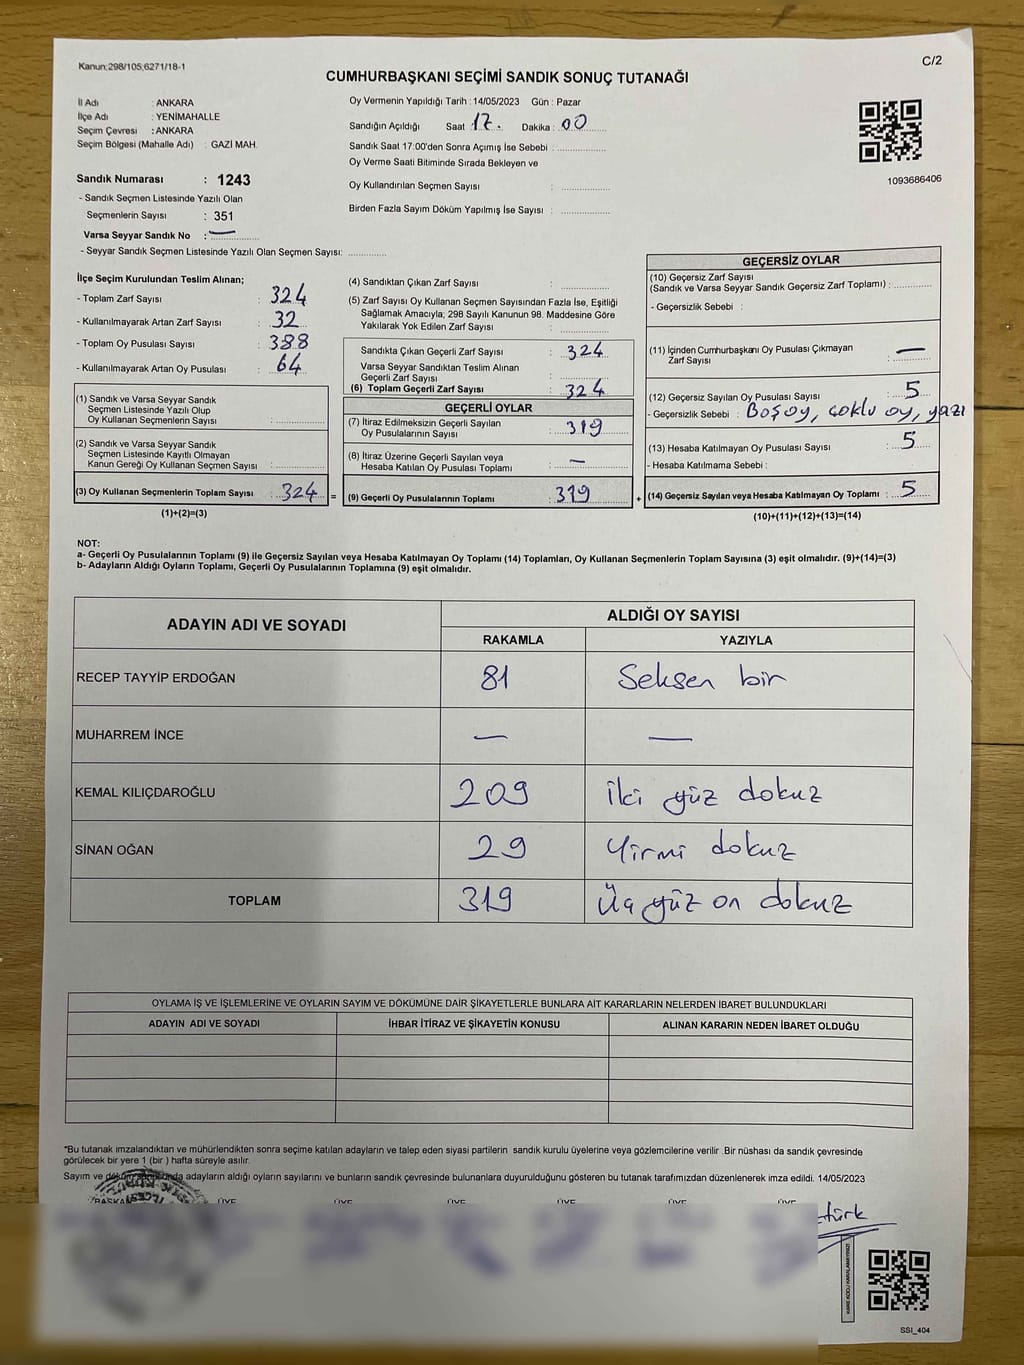 Kanun:298/105;6271/18-1
C/2
CUMHURBAŞKANI SEÇİMİ SANDIK SONUÇ TUTANAĞI
İl Adı : ANKARA
İlçe Adı : YENİMAHALLE
Seçim Çevresi : ANKARA
Seçim Bölgesi (Mahalle Adı) : GAZİ MAH.
Oy Vermenin Yapıldığı Tarih : 14/05/2023 Gün : Pazar
Sandığın Açıldığı Saat 17. Dakika : 00
Sandık Saat 17:00'den Sonra Açımış İse Sebebi :
Oy Verme Saati Bitiminde Sırada Bekleyen ve
Oy Kullandırılan Seçmen Sayısı :
Birden Fazla Sayım Döküm Yapılmış İse Sayısı :
1093686406
Sandık Numarası : 1243
- Sandık Seçmen Listesinde Yazılı Olan
Seçmenlerin Sayısı : 351
Varsa Seyyar Sandık No : —
- Seyyar Sandık Seçmen Listesinde Yazılı Olan Seçmen Sayısı:
İlçe Seçim Kurulundan Teslim Alınan;
- Toplam Zarf Sayısı : 324
- Kullanılmayarak Artan Zarf Sayısı : 32
- Toplam Oy Pusulası Sayısı : 388
- Kullanılmayarak Artan Oy Pusulası : 64
(1) Sandık ve Varsa Seyyar Sandık
Seçmen Listesinde Yazılı Olup
Oy Kullanan Seçmenlerin Sayısı :
(2) Sandık ve Varsa Seyyar Sandık
Seçmen Listesinde Kayıtlı Olmayan
Kanun Gereği Oy Kullanan Seçmen Sayısı :
(3) Oy Kullanan Seçmenlerin Toplam Sayısı : 324 =
(1)+(2)=(3)
(4) Sandıktan Çıkan Zarf Sayısı :
(5) Zarf Sayısı Oy Kullanan Seçmen Sayısından Fazla İse, Eşitliği
Sağlamak Amacıyla; 298 Sayılı Kanunun 98. Maddesine Göre
Yakılarak Yok Edilen Zarf Sayısı :
Sandıkta Çıkan Geçerli Zarf Sayısı : 324
Varsa Seyyar Sandıktan Teslim Alınan
Geçerli Zarf Sayısı :
(6) Toplam Geçerli Zarf Sayısı : 324
GEÇERLİ OYLAR
(7) İtiraz Edilmeksizin Geçerli Sayılan
Oy Pusulalarının Sayısı : 319
(8) İtiraz Üzerine Geçerli Sayılan veya
Hesaba Katılan Oy Pusulası Toplamı : —
(9) Geçerli Oy Pusulalarının Toplamı : 319 +
GEÇERSİZ OYLAR
(10) Geçersiz Zarf Sayısı
(Sandık ve Varsa Seyyar Sandık Geçersiz Zarf Toplamı) :
- Geçersizlik Sebebi :
(11) İçinden Cumhurbaşkanı Oy Pusulası Çıkmayan
Zarf Sayısı : —
(12) Geçersiz Sayılan Oy Pusulası Sayısı : 5
- Geçersizlik Sebebi : Boş oy, çoklu oy, yazı
(13) Hesaba Katılmayan Oy Pusulası Sayısı : 5
- Hesaba Katılmama Sebebi :
(14) Geçersiz Sayılan veya Hesaba Katılmayan Oy Toplamı : 5
(10)+(11)+(12)+(13)=(14)
NOT:
a- Geçerli Oy Pusulalarının Toplamı (9) ile Geçersiz Sayılan veya Hesaba Katılmayan Oy Toplamı (14) Toplamları, Oy Kullanan Seçmenlerin Toplam Sayısına (3) eşit olmalıdır. (9)+(14)=(3)
b- Adayların Aldığı Oyların Toplamı, Geçerli Oy Pusulalarının Toplamına (9) eşit olmalıdır.
ADAYIN ADI VE SOYADI
ALDIĞI OY SAYISI
RAKAMLA YAZIYLA
RECEP TAYYİP ERDOĞAN 81 Seksen bir
MUHARREM İNCE — —
KEMAL KILIÇDAROĞLU 209 iki yüz dokuz
SİNAN OĞAN 29 Yirmi dokuz
TOPLAM 319 Üç yüz on dokuz
OYLAMA İŞ VE İŞLEMLERİNE VE OYLARIN SAYIM VE DÖKÜMÜNE DAİR ŞİKAYETLERLE BUNLARA AİT KARARLARIN NELERDEN İBARET BULUNDUKLARI
ADAYIN ADI VE SOYADI İHBAR İTİRAZ VE ŞİKAYETİN KONUSU ALINAN KARARIN NEDEN İBARET OLDUĞU
*Bu tutanak imzalandıktan ve mühürlendikten sonra seçime katılan adayların ve talep eden siyasi partilerin sandık kurulu üyelerine veya gözlemcilerine verilir .Bir nüshası da sandık çevresinde
görülecek bir yere 1 (bir ) hafta süreyle asılır.
Sayım ve döküm sonunda adayların aldığı oyların sayılarını ve bunların sandık çevresinde bulunanlara duyurulduğunu gösteren bu tutanak tarafımızdan düzenlenerek imza edildi. 14/05/2023
ÜYE ÜYE ÜYE ÜYE ÜYE ÜYE
türk
SSI_404